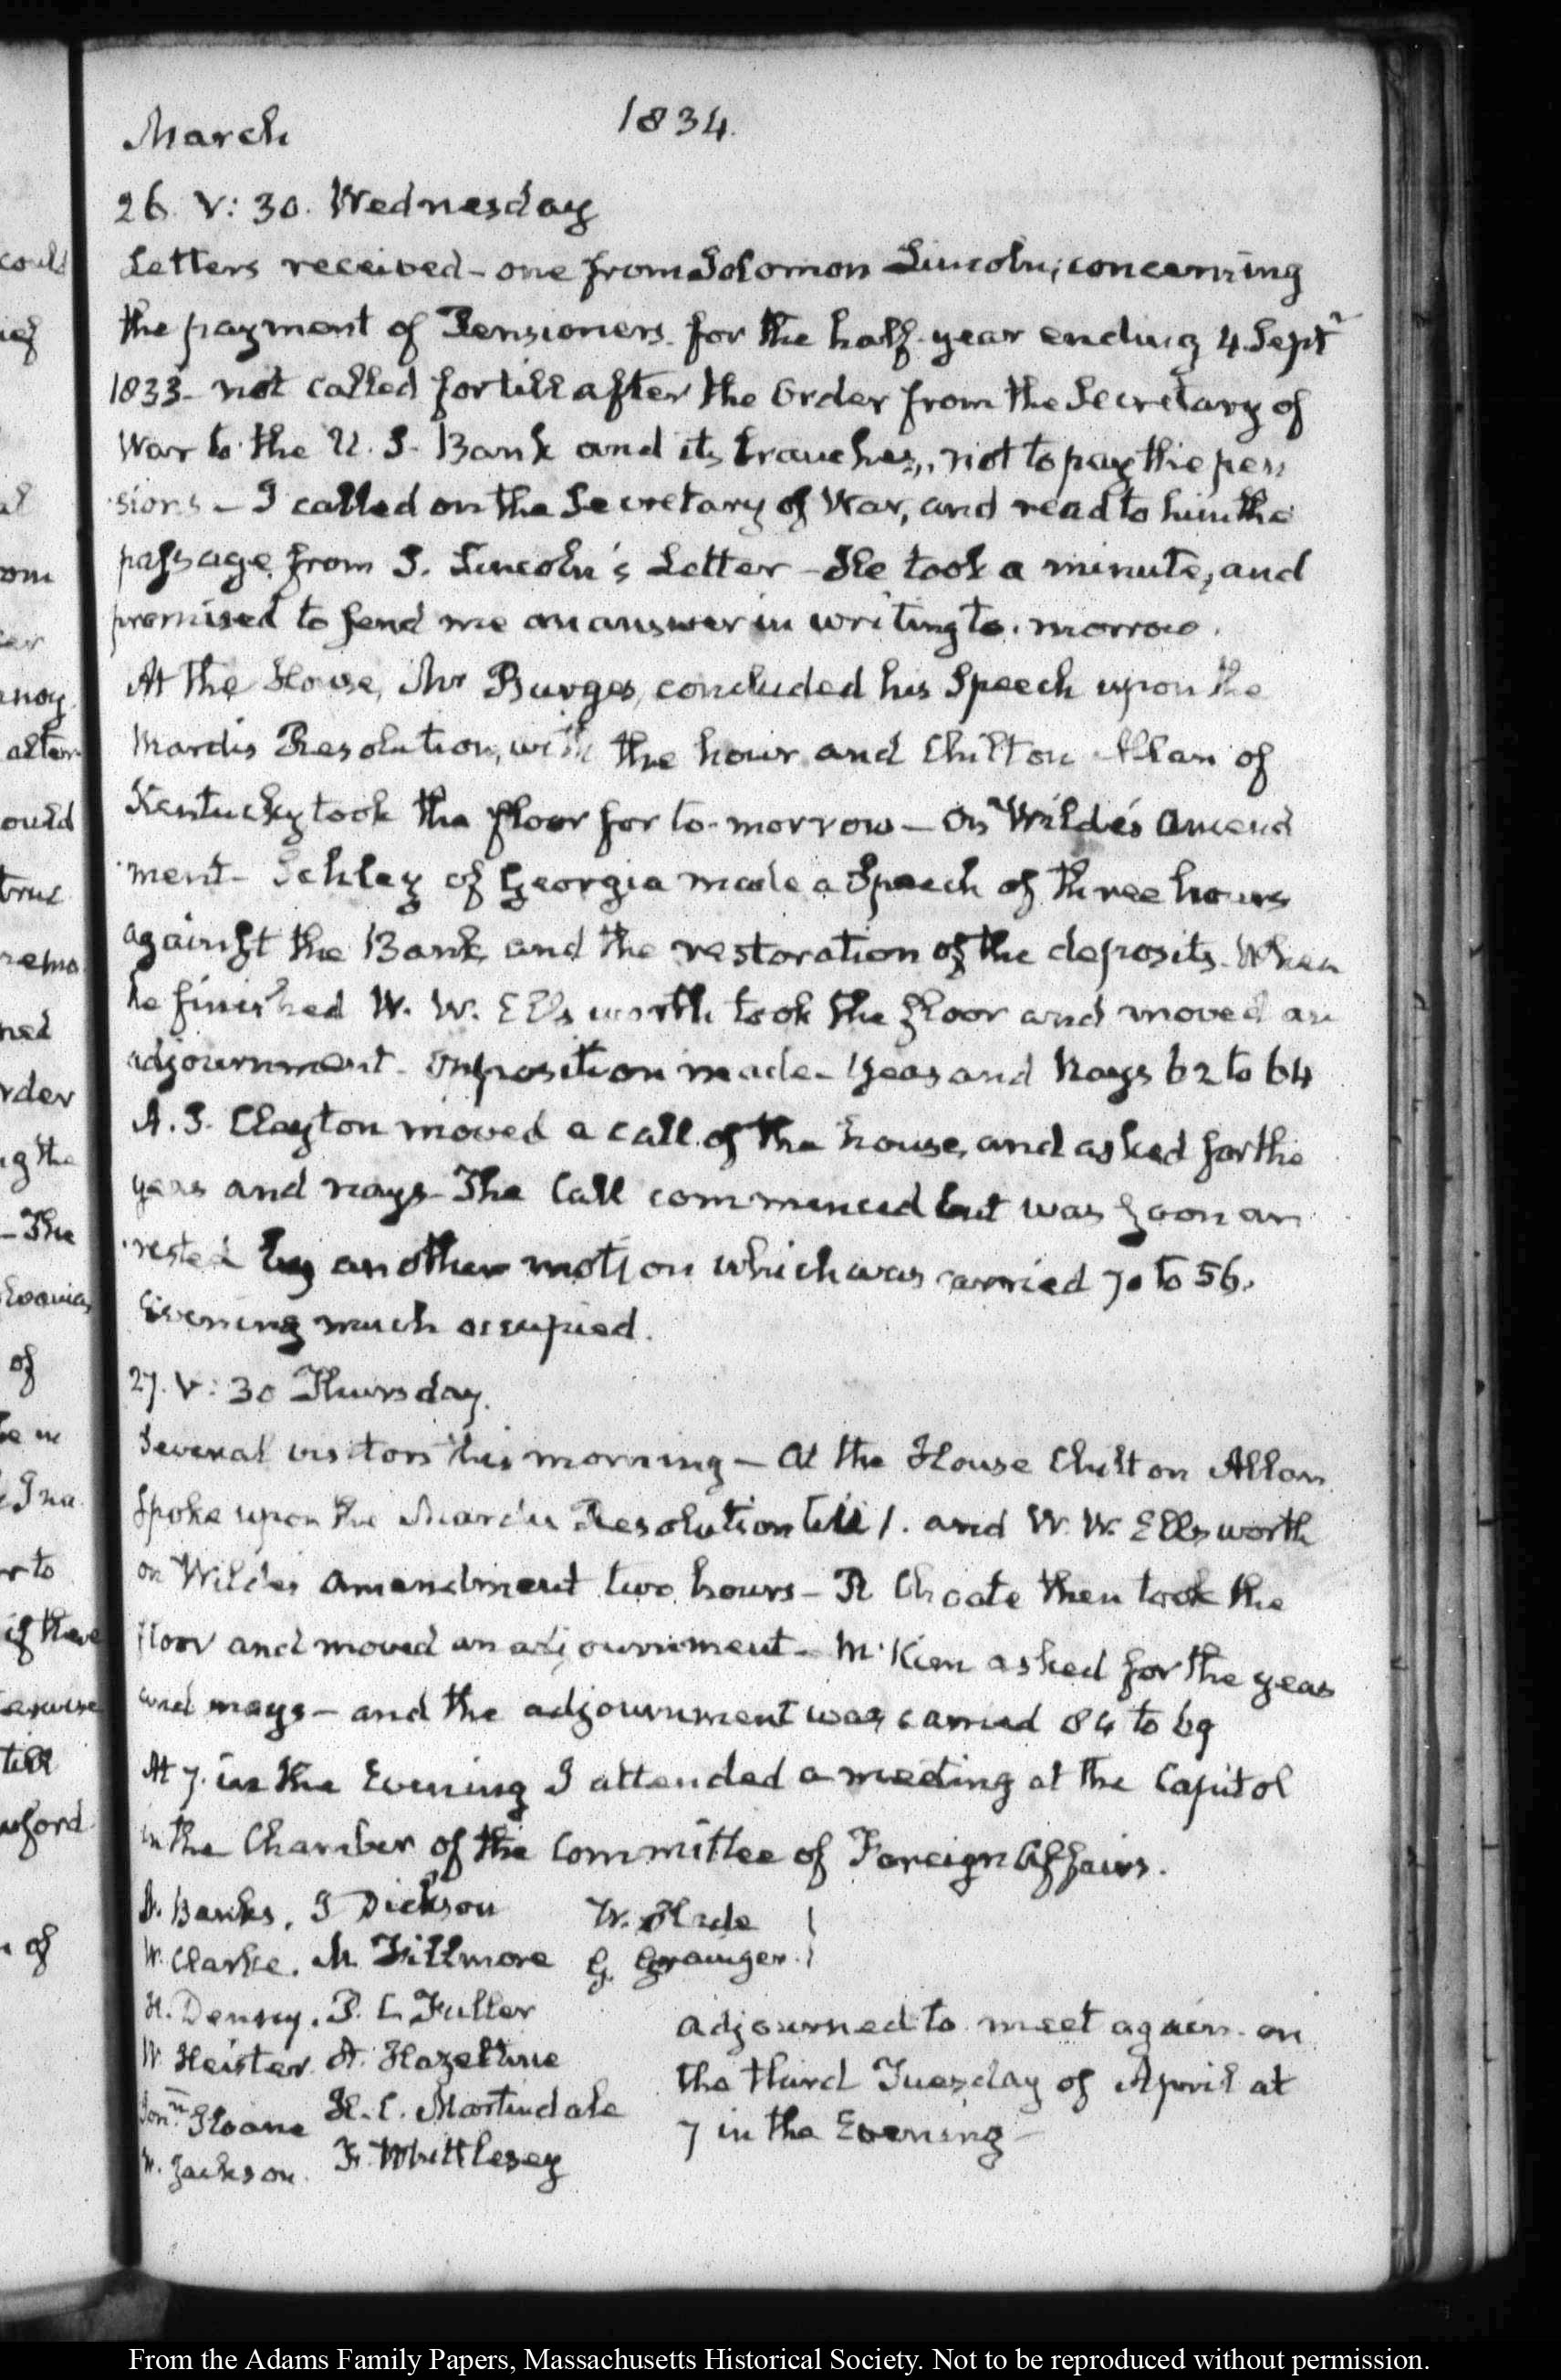 1834.
March
26. V: 30. Wednesday
Letters received – one from Solomon Lincoln, concerning
the payment of Pensioners for the half-year ending 4 Septr
1833 – not called for till after the Order from the Secretary of
War to the U. S. Bank and its branches, not to pay the pen
sions – I called on the Secretary of War, and read to him the
passage from S. Lincoln's Letter – He took a minute, and
promised to send me an answer in writing to-morrow.
At the House, Mr Burges, concluded his Speech upon the
Mardis Resolution, with the hour and Chilton Allan of
Kentucky took the floor for to-morrow – On Wilde's amend
ment – Schley of Georgia made a Speech of three hours
against the Bank, and the restoration of the deposits. When
he finished W. W. Ellsworth took the floor and moved an
adjournment – Opposition made – Yeas and Nays 62 to 64
A. S. Clayton moved a call of the house, and asked for the
yeas and nays – The Call commenced but was soon ar
rested by another motion which was carried 70 to 56.
Evening much occupied.
27. V: 30 Thursday.
Several visitors this morning – At the House Chilton Allan
spoke upon the Mardis Resolution till 1. and W. W. Ellsworth
on Wilde's amendment two hours – R Choate then took the
floor and moved an adjournment – McKim asked for the yeas
and nays – and the adjournment was carried 84 to 69
At 7. in the Evening I attended a meeting at the Capitol
in the Chamber of the Committee of Foreign Affairs.
J. Banks, J Dickson W. Slade
W. Clarke. M. Fillmore G. Granger.
H. Denny. P. C. Fuller
W Heister. A. Hazeltine
Jonn. Sloane H. C. Martindale
W. Jackson. F. Whittlesey
adjourned to meet again on
the third Tuesday of April at
7 in the Evening –
From the Adams Family Papers, Massachusetts Historical Society. Not to be reproduced without permission.